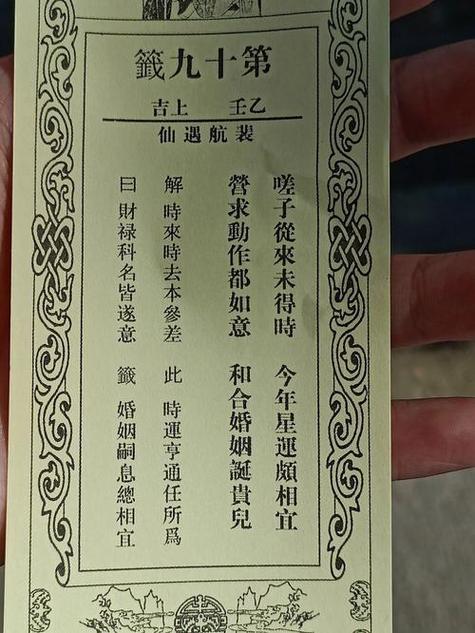 第十九籤
乙壬 上吉
裴航遇仙
嗟子從來未得時 今年星運頗相宜
營求動作都如意 和合婚姻誕貴兒
解 時來時去本參差 此 時運亨通任所爲
曰 財禄科名皆遂意 籤 婚姻嗣息總相宜